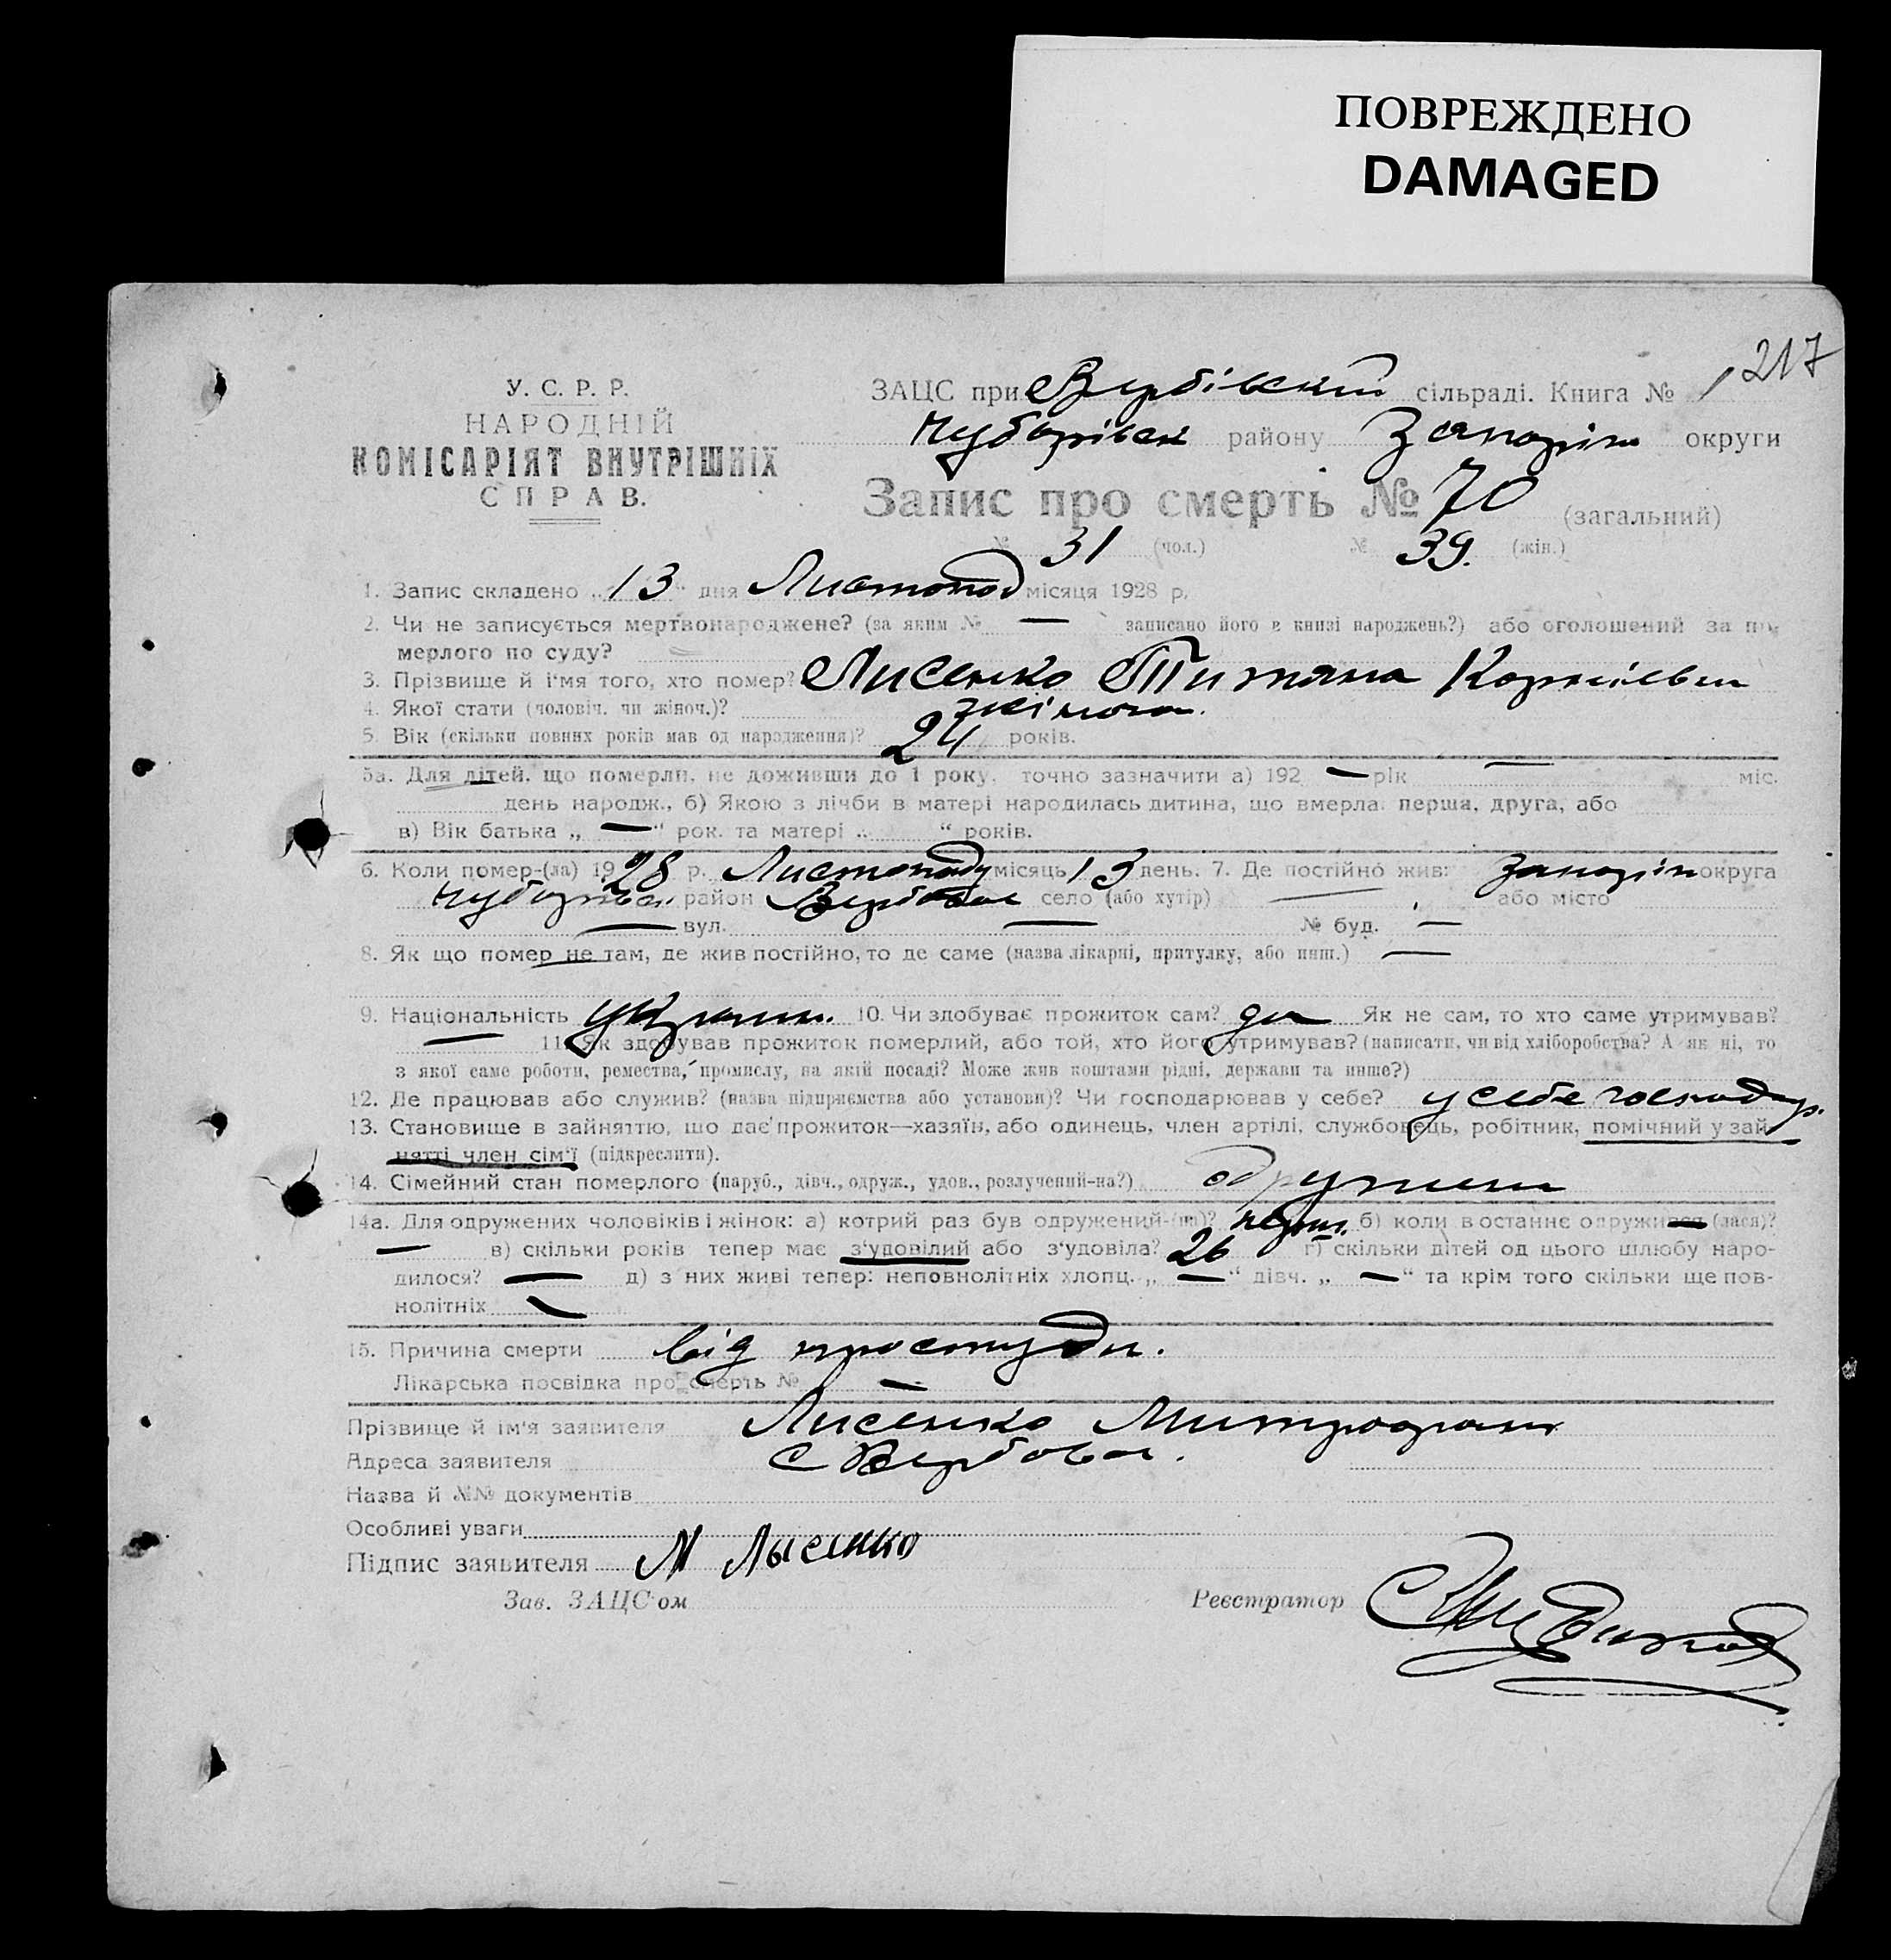 ПОВРЕЖДЕНО
DAMAGED
217
У. С. Р. Р.
НАРОДНІЙ
КОМІСАРІЯТ ВНУТРІШНІХ
СПРАВ.
ЗАЦС при Вербівській сільраді. Книга № 1
Чубарівськ району Запоріж округи
Запис про смерть № 70 (загальний)
№ 31 (чол.) № 39. (жін.)
1. Запис складено „13“ дня Листопад місяця 1928 р.
2. Чи не записується мертвонароджене? (за яким № — записано його в книзі народжень?) або оголошений за по-
мерлого по суду?
3. Прізвище й і'мя того, хто помер? Лисенко Титяна Корніївни
4. Якої стати (чоловіч. чи жіноч.)? жіноча.
5. Вік (скільки повних років мав од народження)? 24 років.
5а. Для дітей, що померли, не доживши до 1 року, точно зазначити а) 192 — рік — міс.
день народж., б) Якою з лічби в матері народилась дитина, що вмерла: перша, друга, або
в) Вік батька „ — “ рок. та матері „ “ років.
6. Коли помер-(ла) 1928 р. Листопаду місяць 13 день. 7. Де постійно жив: Запоріж округа
Чубарівськ район Вербове село (або хутір) — або місто
— вул. — № буд. —
8. Як що помер не там, де жив постійно, то де саме (назва лікарні, притулку, або инш.) —
9. Національність україн. 10. Чи здобуває прожиток сам? да Як не сам, то хто саме утримував?
— 11. Як здобував прожиток померлий, або той, хто його утримував? (написати, чи від хліборобства? А як ні, то
з якої саме роботи, ремества, промислу, на якій посаді? Може жив коштами рідні, держави та инше?)
12. Де працював або служив? (назва підприємства або установи)? Чи господарював у себе? у себе господар.
13. Становище в зайняттю, що дає прожиток—хазяїн, або одинець, член артілі, службовець, робітник, помічний у зай-
нятті член сім'ї (підкреслити).
14. Сімейний стан померлого (паруб., дівч., одруж., удов., розлучений-на?)
14а. Для одружених чоловіків і жінок: а) котрий раз був одружений-(на)? перш. б) коли востаннє одружився (лася)?
— в) скільки років тепер має з'удовілий або з'удовіла? 26 г) скільки дітей од цього шлюбу наро-
дилося? — д) з них живі тепер: неповнолітніх хлопц. „ — “ дівч. „ — “ та крім того скільки ще пов-
нолітніх —
15. Причина смерти від простуди.
Лікарська посвідка про смерть № —
Прізвище й ім'я заявителя Лисенко Митрофан
Адреса заявителя С Вербове.
Назва й №№ документів
Особливі уваги
Підпис заявителя М Лысенко
Зав. ЗАЦС'ом Реєстратор